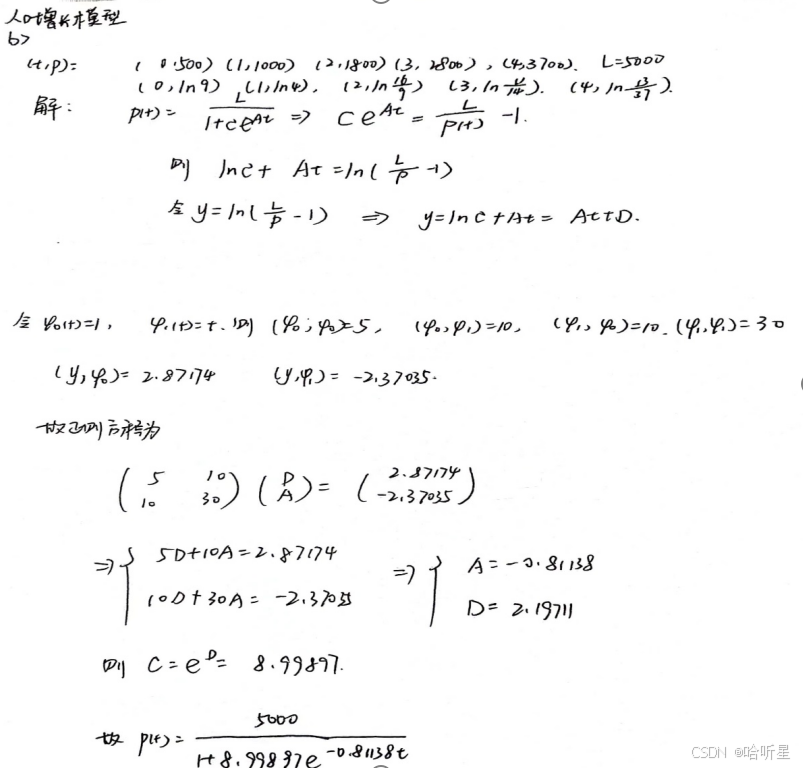 人口增长模型
b>
(t,p): (0.500) (1,1000) (2,1800) (3,2800), (4,3700). L=5000
(0,ln9) (1,ln4), (2,ln 16/9) (3,ln 11/14). (4,ln 13/37).
解: P(t)= L/(1+ce^{At}) ⇒ Ce^{At} = L/P(t) -1.
则 lnc+ At=ln(L/P -1)
令 y=ln(L/P -1) ⇒ y=lnC+At= At+D.
令 φ₀(t)=1, φ₁(t)=t. 则 (φ₀,φ₀)=5, (φ₀,φ₁)=10, (φ₁,φ₀)=10. (φ₁,φ₁)=30
(y,φ₀)= 2.87174 (y,φ₁)= -2.37035.
故正则方程为
(5 10
10 30) (D
A) = (2.87174
-2.37035)
⇒ { 5D+10A=2.87174 ⇒ { A=-0.81138
10D+30A= -2.37035 D= 2.19711
则 C=e^D= 8.99897.
故 P(t)= 5000/(1+8.99897e^{-0.81138t})
CSDN @哈听星